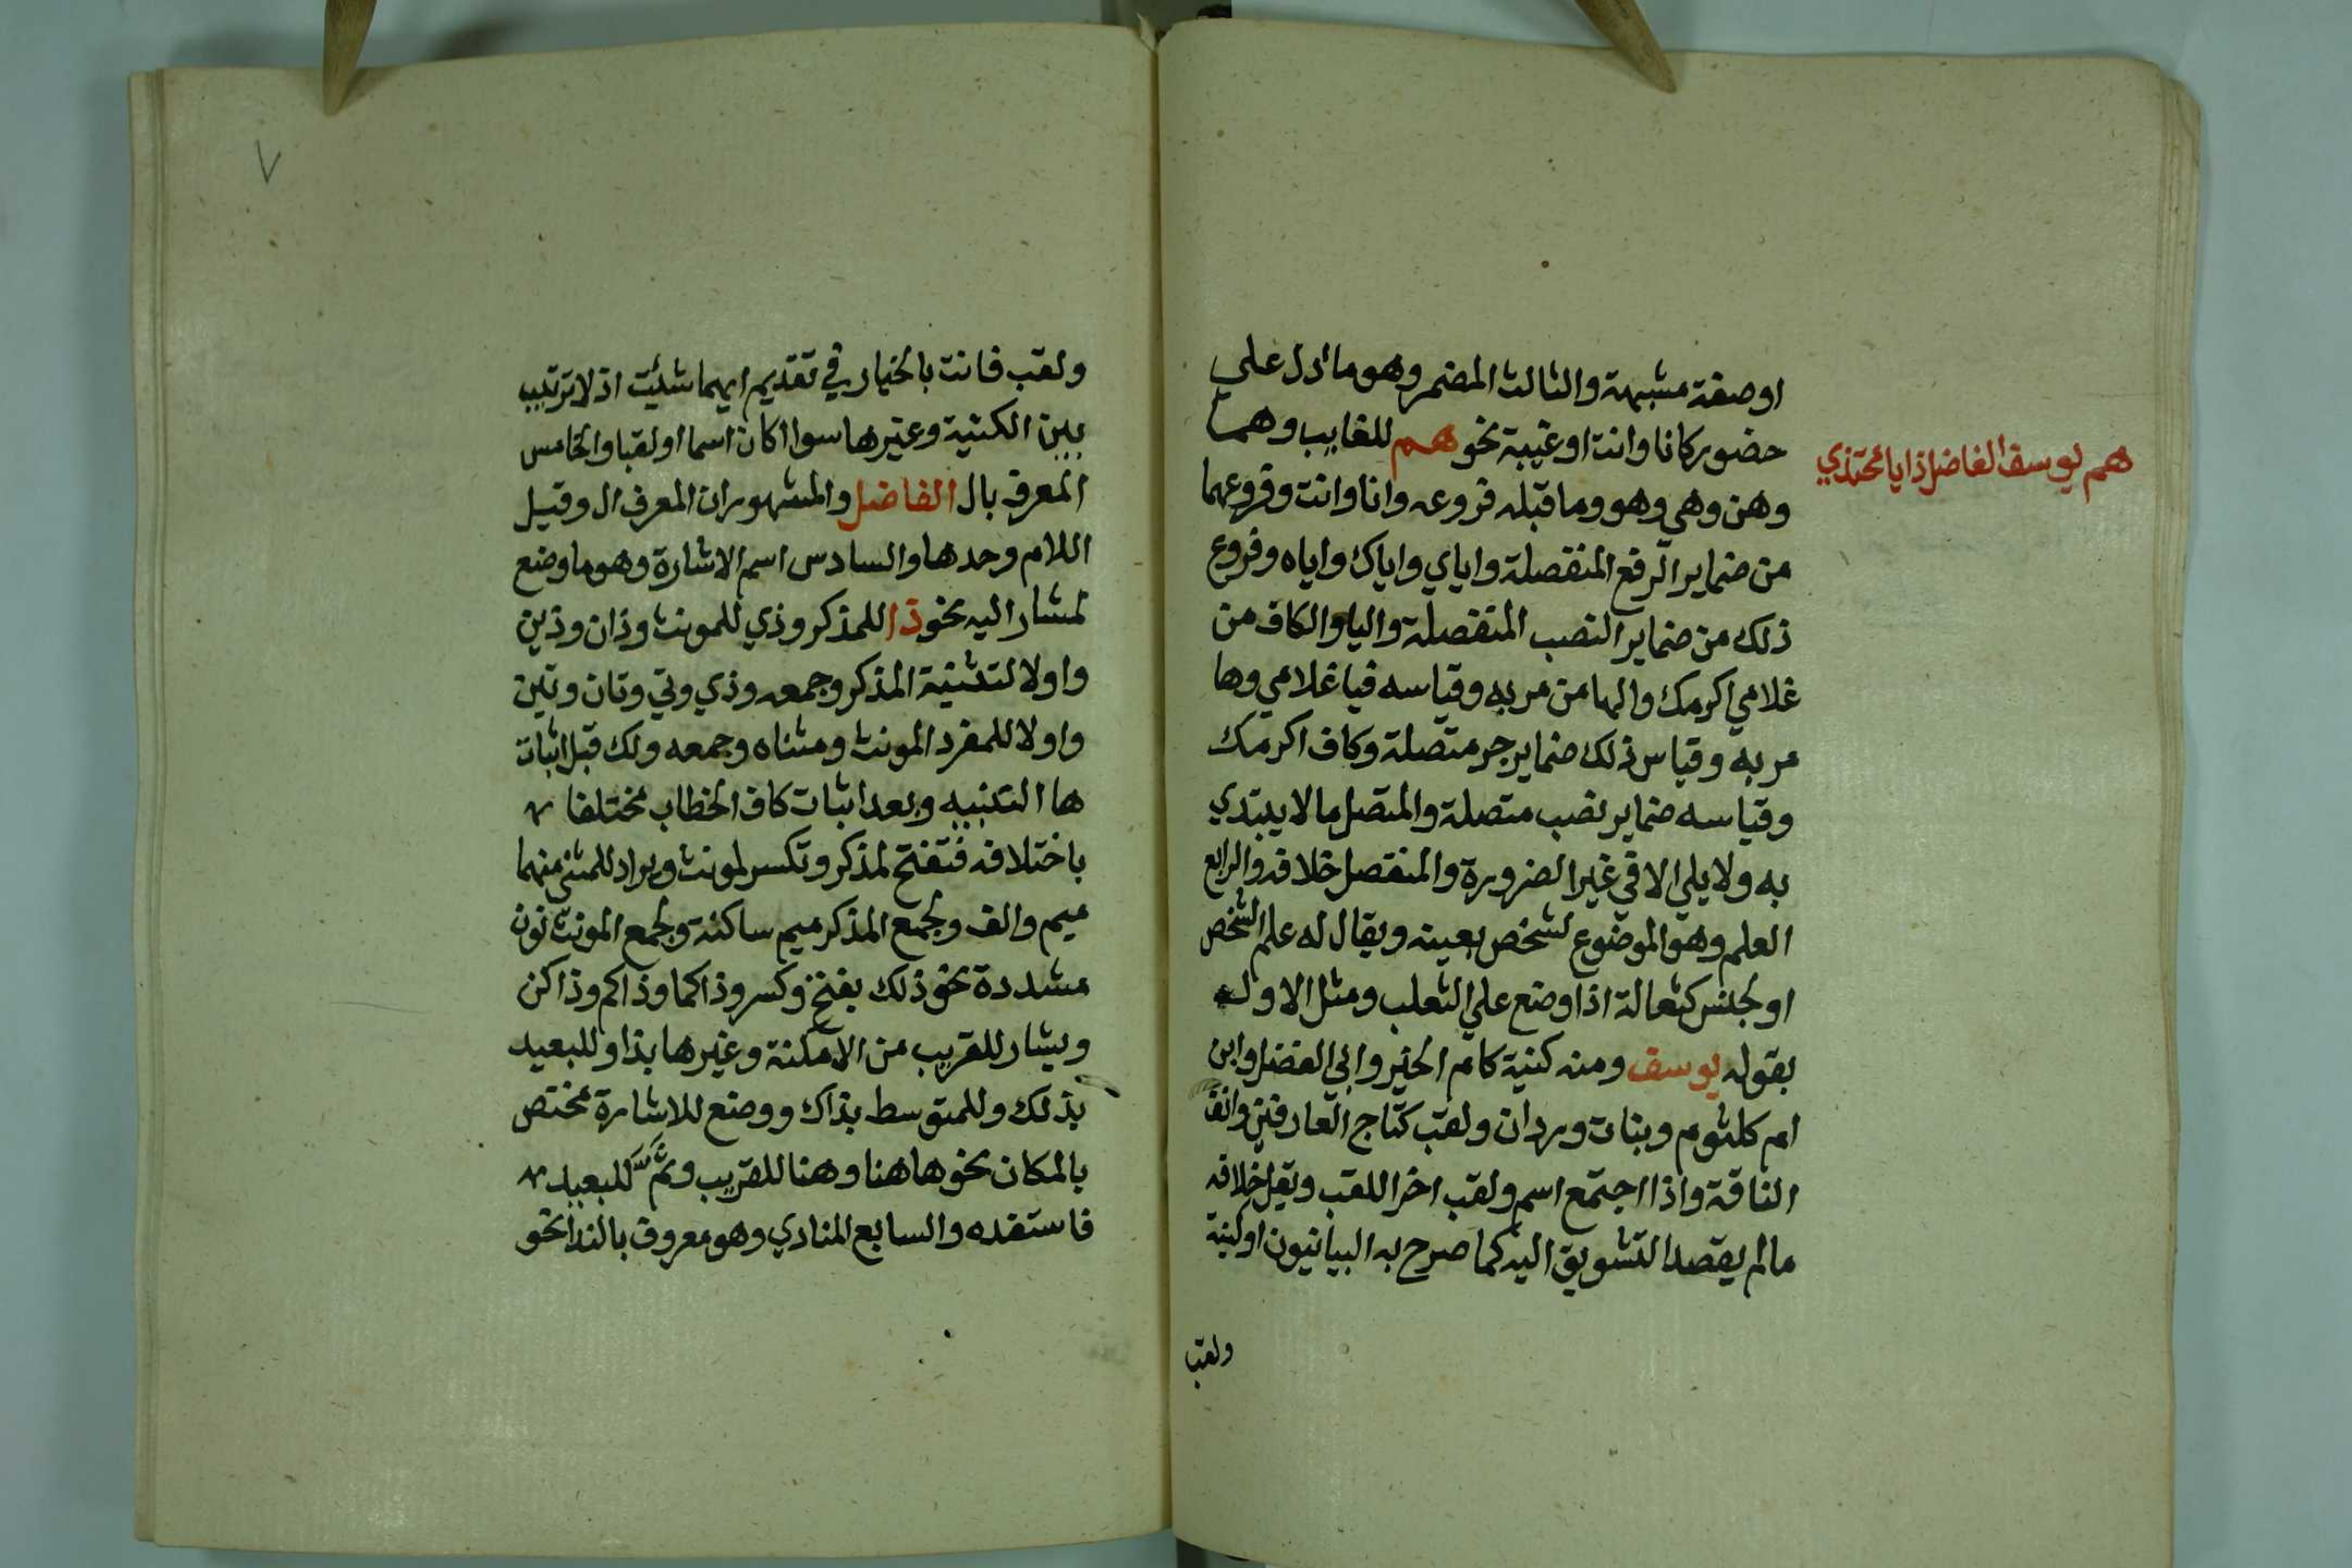 اوصفة مشبهة والثالث المضمر وهو ما دل علي
هم يوسف الفاضل ذا يا محتذي
حضور كانا وانت او غيبة نحو هم للغايب وهما
وهن وهي وهو وما قبله فروعه وانا وانت وفروعهما
من ضماير الرفع المنفصلة واياي واياك واياه وفروع
ذلك من ضماير النصب المنفصلة واليا والكاف من
غلامي اكرمك والها من مر به وقياسه فيا غلامي وها
مر به وقياس ذلك ضماير جر متصلة وكاف اكرمك
وقياسه ضماير نصب متصلة والمتصل ما لا يبتدي
به ولا يلي الا في غير الضرورة والمنفصل خلافه والرابع
العلم وهو الموضوع لشخص بعينه ويقال له علم الشخص
او لجنس كثعالة اذا وضع علي الثعلب ومثل الاول
بقوله يوسف ومنه كنية كام الخير وابي الفضل وابن
ام كلثوم وبنات وردان ولقب كتاج العارفين وانف
الناقة واذا اجتمع اسم ولقب اخر اللقب ويقل خلافه
مالم يقصد التشويق اليه كما صرح به البيانيون او كنية
ولقب
٧
ولقب فانت بالخيار في تقديم ايهما شئيت اذ لا ترتيب
بين الكنية وغيرها سوا اكان اسما او لقبا والخامس
المعرف بال الفاضل والمشهور ان المعرف ال وقيل
اللام وحدها والسادس اسم الاشارة وهو ما وضع
لمشار اليه نحو ذا للمذكر وذي للمونث وذان وذين
واولا لتثنية المذكر وجمعه وذي وتي وتان وتين
واولا للمفرد المونث ومثناه وجمعه ولك قبل اثبات
ها التنبيه وبعد اثبات كاف الخطاب مختلفا
باختلافه فتفتح لمذكر وتكسر لمونث ويراد للمثني منهما
ميم والف ولجمع المذكر ميم ساكنة ولجمع المونث نون
مشددة نحو ذلك بفتح وكسر وذاكما وذاكم وذاكن
ويشار للقريب من الامكنة وغيرها بذا وللبعيد
بذلك وللمتوسط بذاك ووضع للاشارة مختص
بالمكان نحو هاهنا وهنا للقريب وثم للبعيد
فاستفده والسابع المنادي وهو معروف بالندا نحو